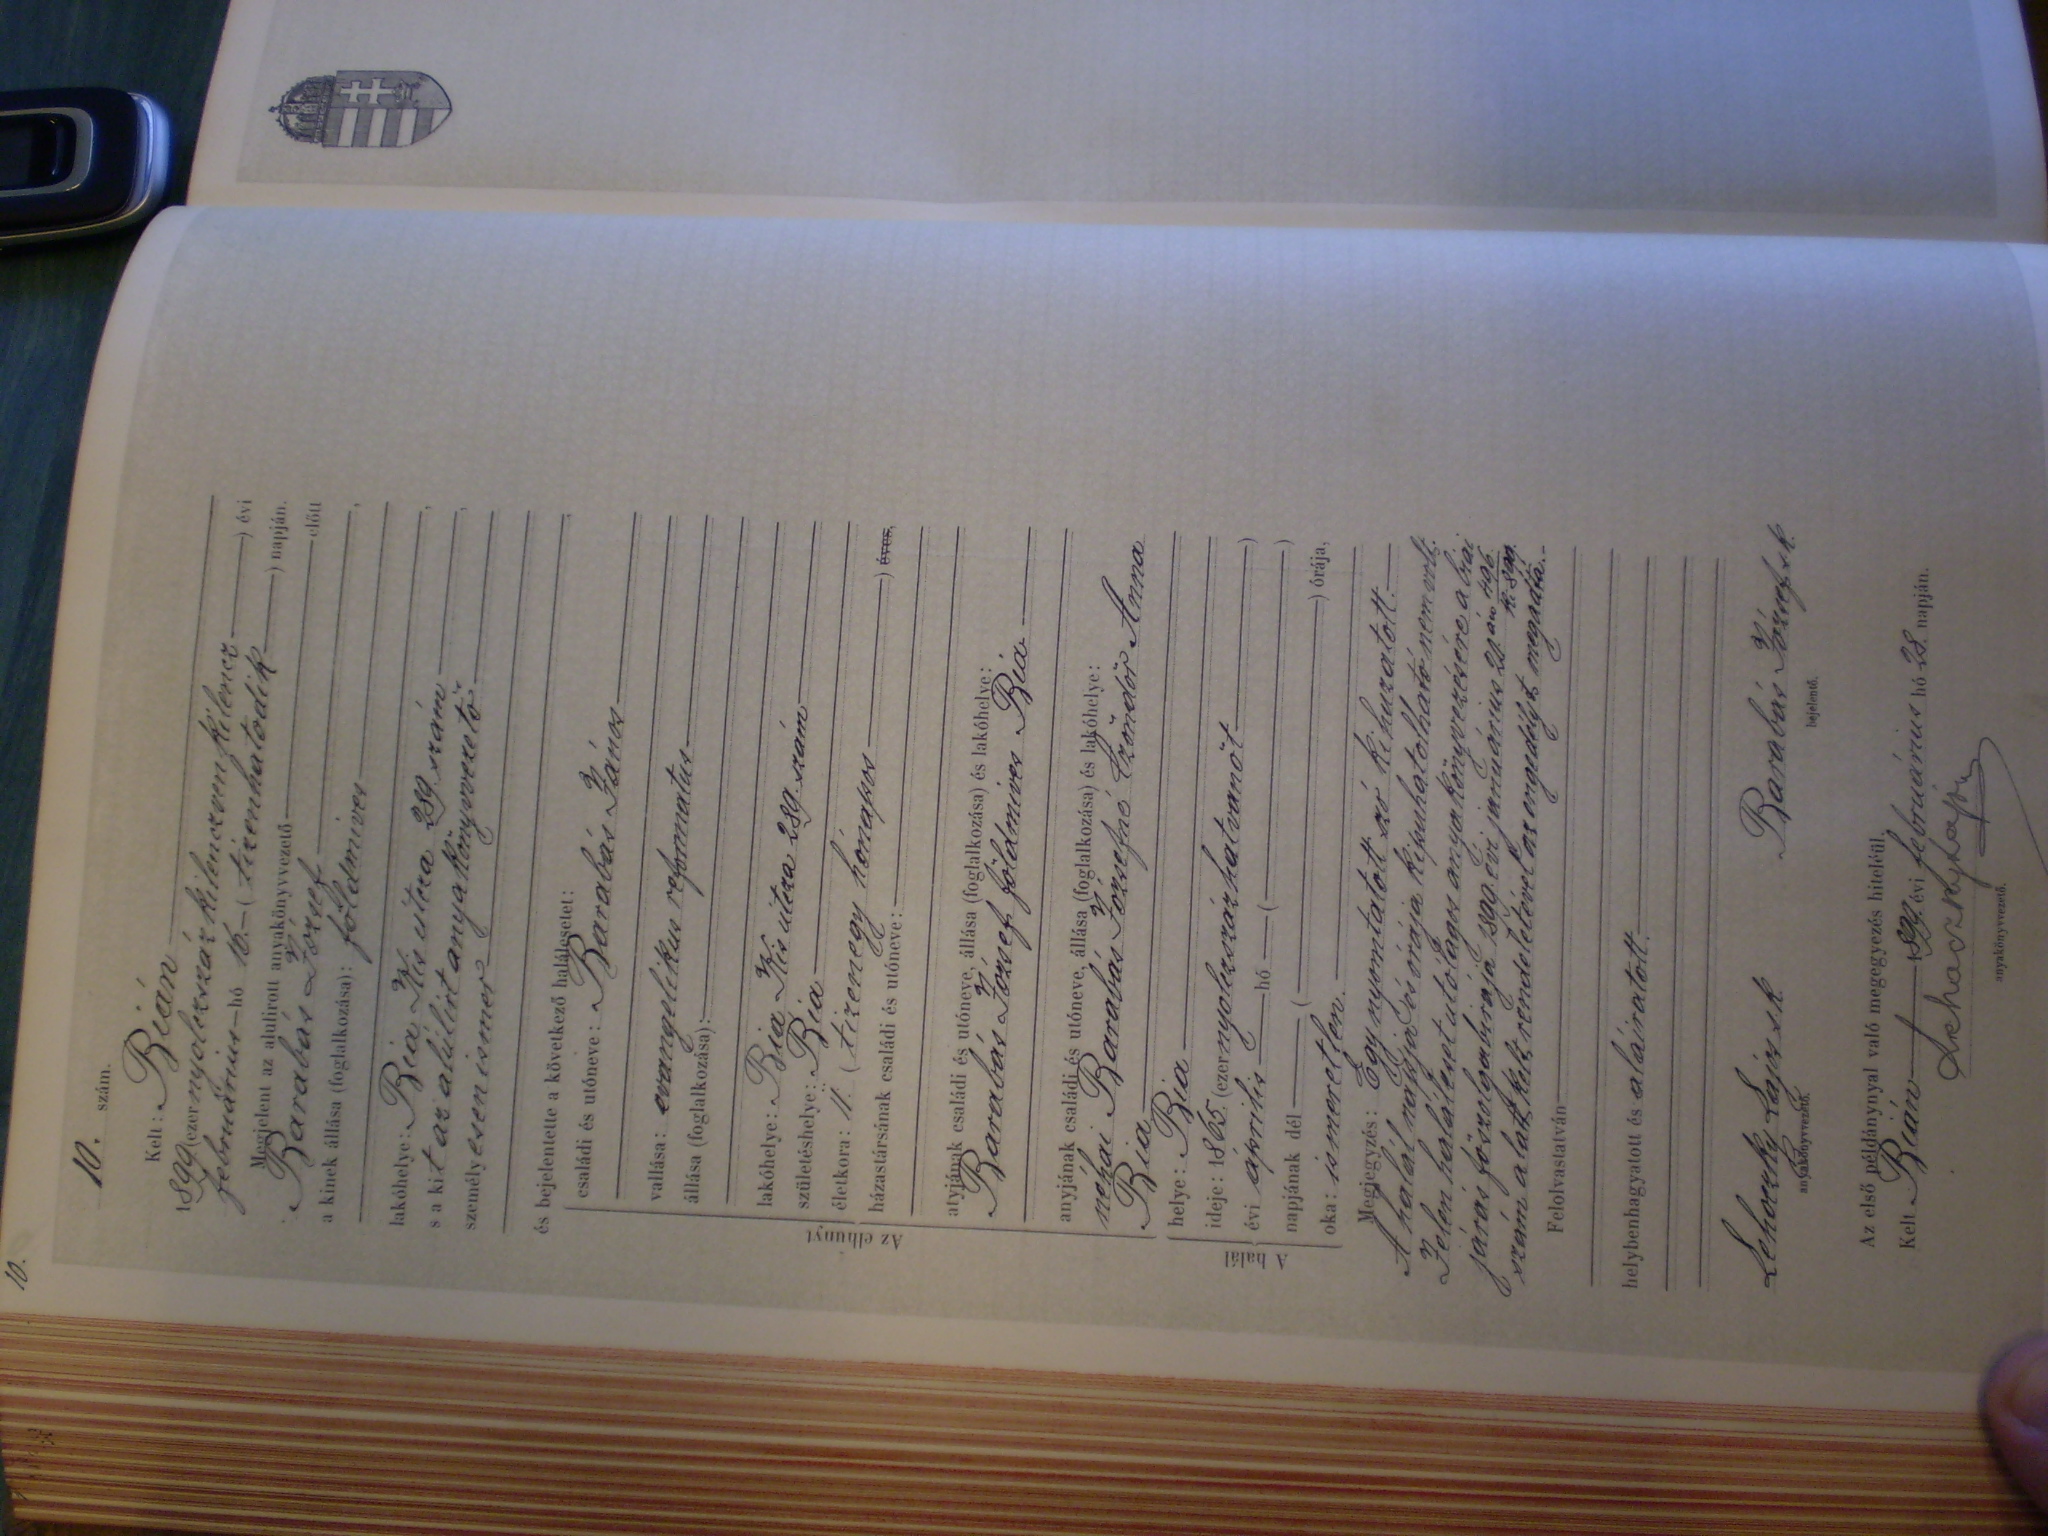 10.
10. szám.
Kelt: Bián
1899 (ezernyolczszázkilenczvenkilencz) évi
február hó 16 (tizenhatodik) napján.
Megjelent az alulirott anyakönyvvezető előtt
Barabás József
a kinek állása (foglalkozása): földmíves,
lakóhelye: Bia Kis utcza 289. szám,
s a kit az alúlirt anyakönyvvezető,
személyesen ismer
és bejelentette a következő halálesetet:
Az elhunyt
családi és utóneve: Barabás János,
vallása: evangelikus reformatus
állása (foglalkozása):
lakóhelye: Bia Kis utcza 289. szám
születéshelye: Bia
életkora: 11. (tizenegy hónapos) éves,
házastársának családi és utóneve:
atyjának családi és utóneve, állása (foglalkozása) és lakóhelye:
Barabás József földmíves Bia
anyjának családi és utóneve, állása (foglalkozása) és lakóhelye:
néhai Barabás Józsefné Czöndör Anna
Bia
A halál
helye: Bia
ideje: 1865. (ezernyolczszázhatvanöt)
évi április hó ( )
napjának dél ( ) órája,
oka: ismeretlen.
Megjegyzés: Egy nyomtatott szó kihuzatott.
A halál napja és órája kipuhatolható nem volt.
Jelen haláleset utólagos anyakönyvezésére a biai
járás főszolgabirája 1899 évi január 21 én 496
szám alatt kelt rendeletével az engedélyt megadta.
Felolvastatván
helybenhagyatott és aláiratott.
Lehoczky Lajos s.k. Barabás József s.k.
anyakönyvvezető. bejelentő.
Az első példánynyal való megegyezés hiteléül.
Kelt Bián 1899. évi február hó 28. napján.
Lehoczky Lajos
anyakönyvvezető.